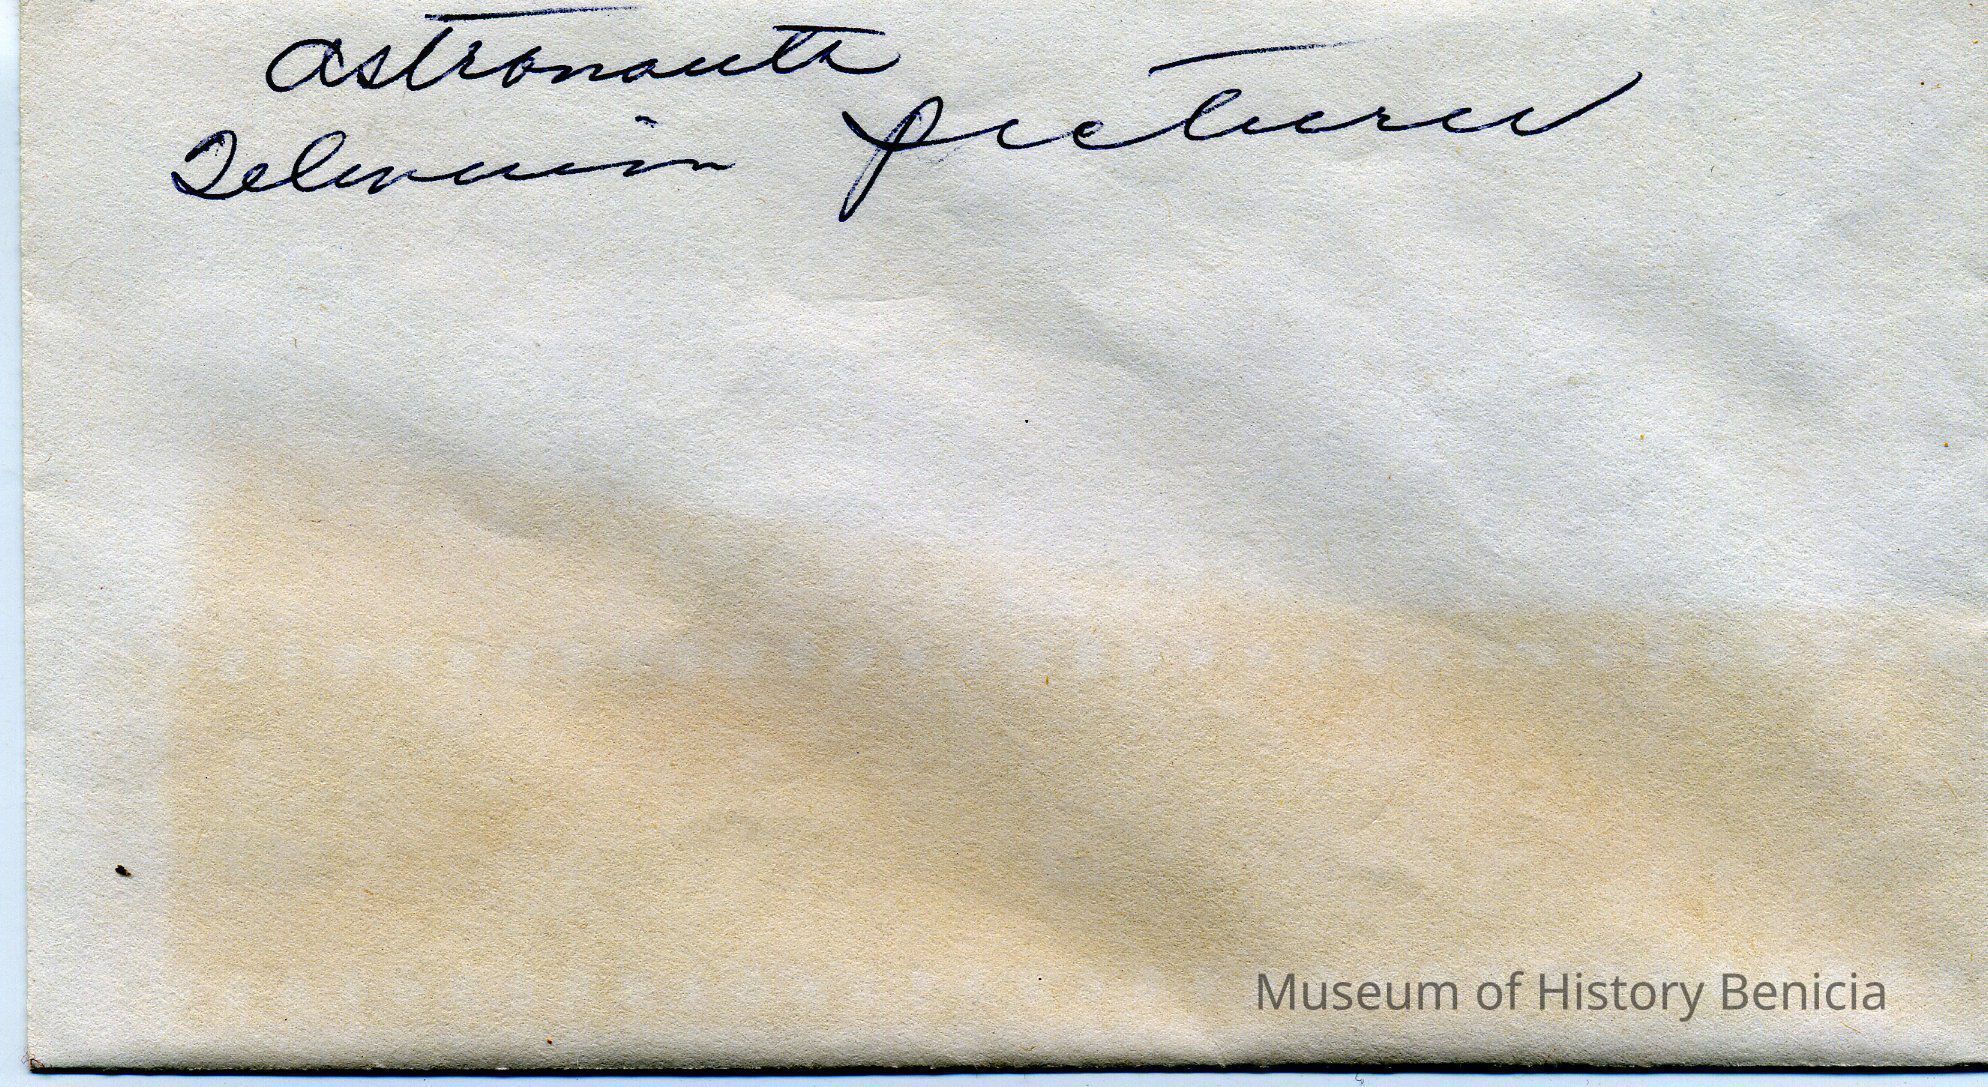 Astronauts
Television pictures
Museum of History Benicia